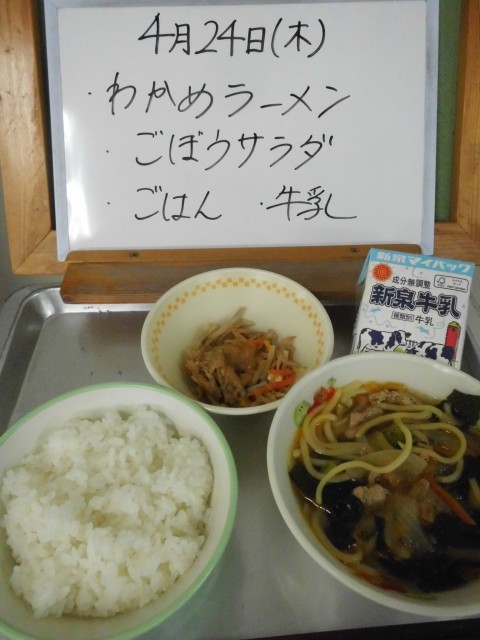 4月24日(木)
・わかめラーメン
・ごぼうサラダ
・ごはん ・牛乳
新泉マイパック
成分無調整
新泉牛乳
種類別 牛乳